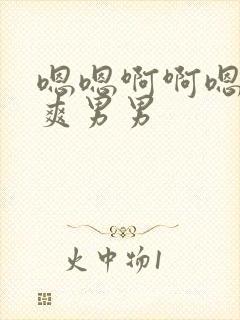 嗯嗯啊啊嗯
爽男男
火中物1